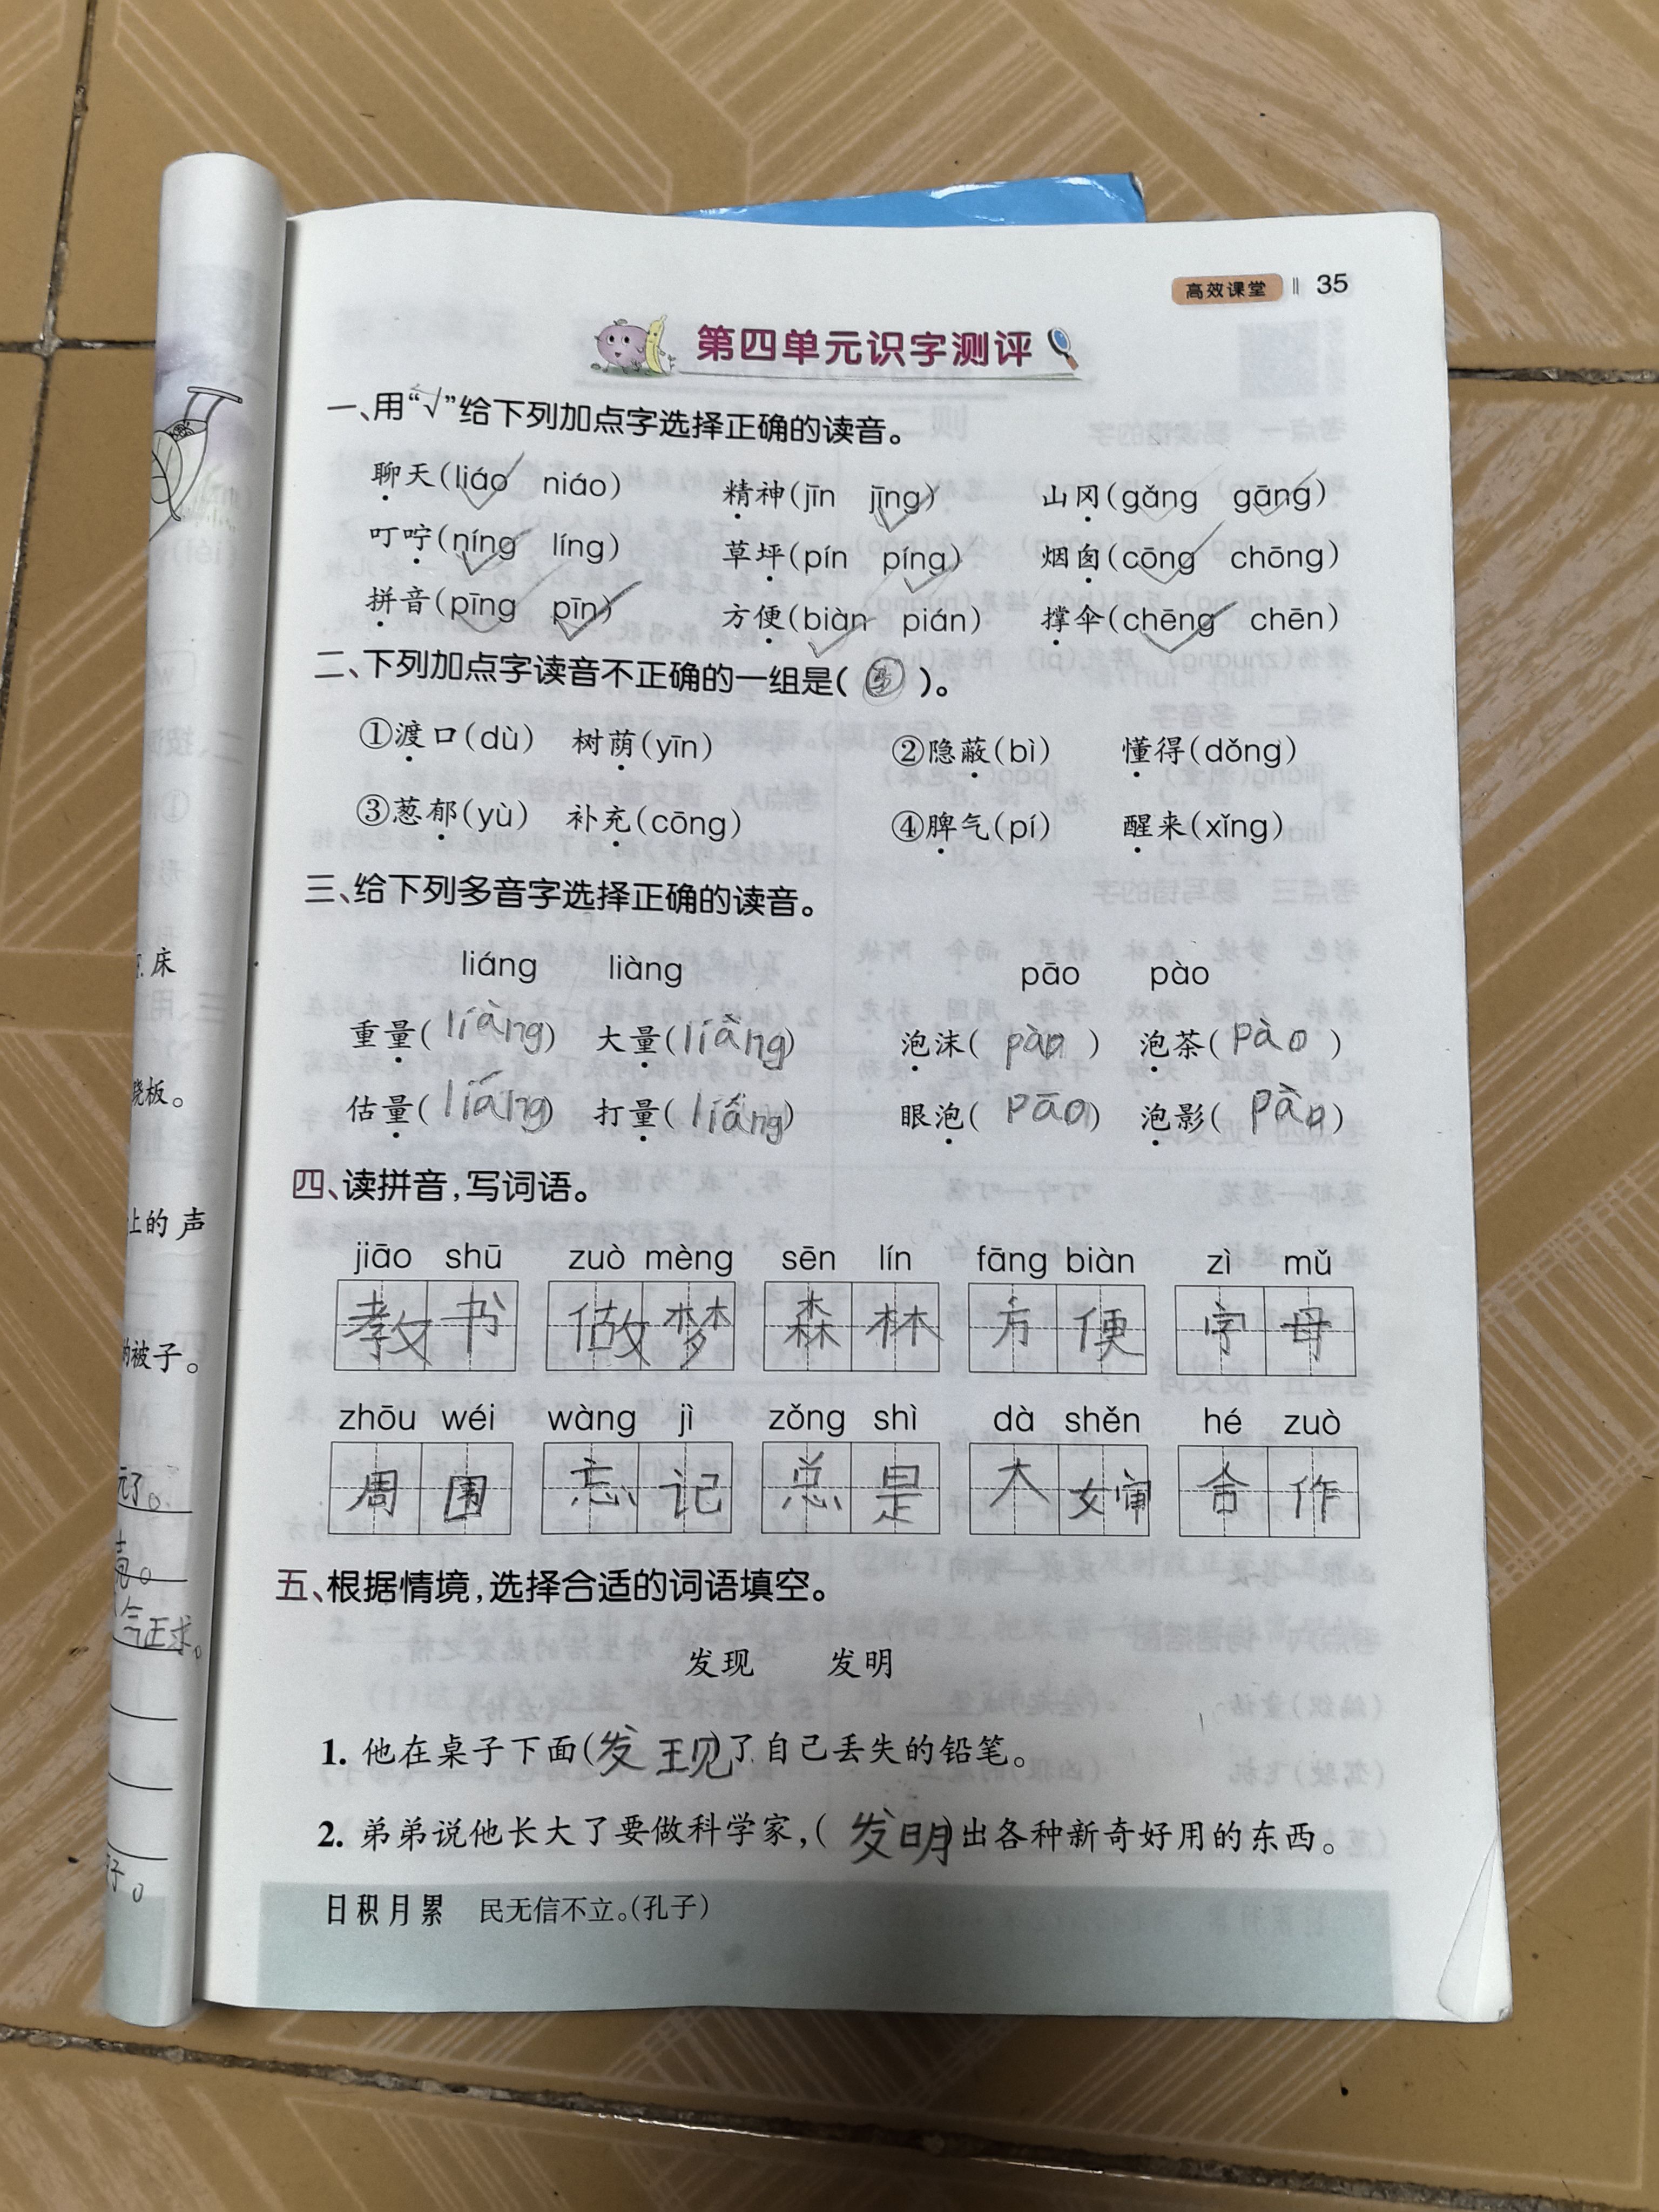 高效课堂 35
第四单元识字测评
一、用“√”给下列加点字选择正确的读音。
聊天(liáo niáo) 精神(jīn jīng) 山冈(gǎng gāng)
叮咛(níng líng) 草坪(pín píng) 烟囱(cōng chōng)
拼音(pīng pīn) 方便(biàn pián) 撑伞(chēng chēn)
二、下列加点字读音不正确的一组是( ③ )。
①渡口(dù) 树荫(yīn) ②隐蔽(bì) 懂得(dǒng)
③葱郁(yù) 补充(cōng) ④脾气(pí) 醒来(xǐng)
三、给下列多音字选择正确的读音。
liáng liàng pāo pào
重量( liàng ) 大量( liàng ) 泡沫( pào ) 泡茶( pào )
估量( liáng ) 打量( liáng ) 眼泡( pāo ) 泡影( pào )
四、读拼音,写词语。
jiāo shū zuò mèng sēn lín fāng biàn zì mǔ
教书 做梦 森林 方便 字母
zhōu wéi wàng jì zǒng shì dà shěn hé zuò
周围 忘记 总是 大婶 合作
五、根据情境,选择合适的词语填空。
发现 发明
1. 他在桌子下面(发现)了自己丢失的铅笔。
2. 弟弟说他长大了要做科学家,(发明)出各种新奇好用的东西。
日积月累 民无信不立。(孔子)
床
晓板。
上的声
的被子。
元了。
气正求。
子。